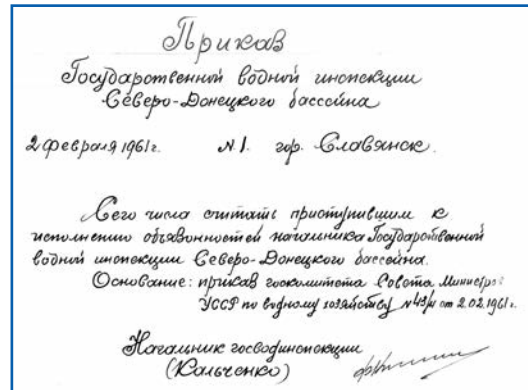 Приказ
Государственной водной инспекции
Северо-Донецкого бассейна
2 февраля 1961г. №1. гор. Славянск.
Сего числа считать приступившим к
исполнению обязанностей начальника Государственной
водной инспекции Северо-Донецкого бассейна.
Основание: приказ госкомитета Совета Министров
УССР по водному хозяйству от 2.02.1961г.
Начальник госводинспекции
(Кальченко)